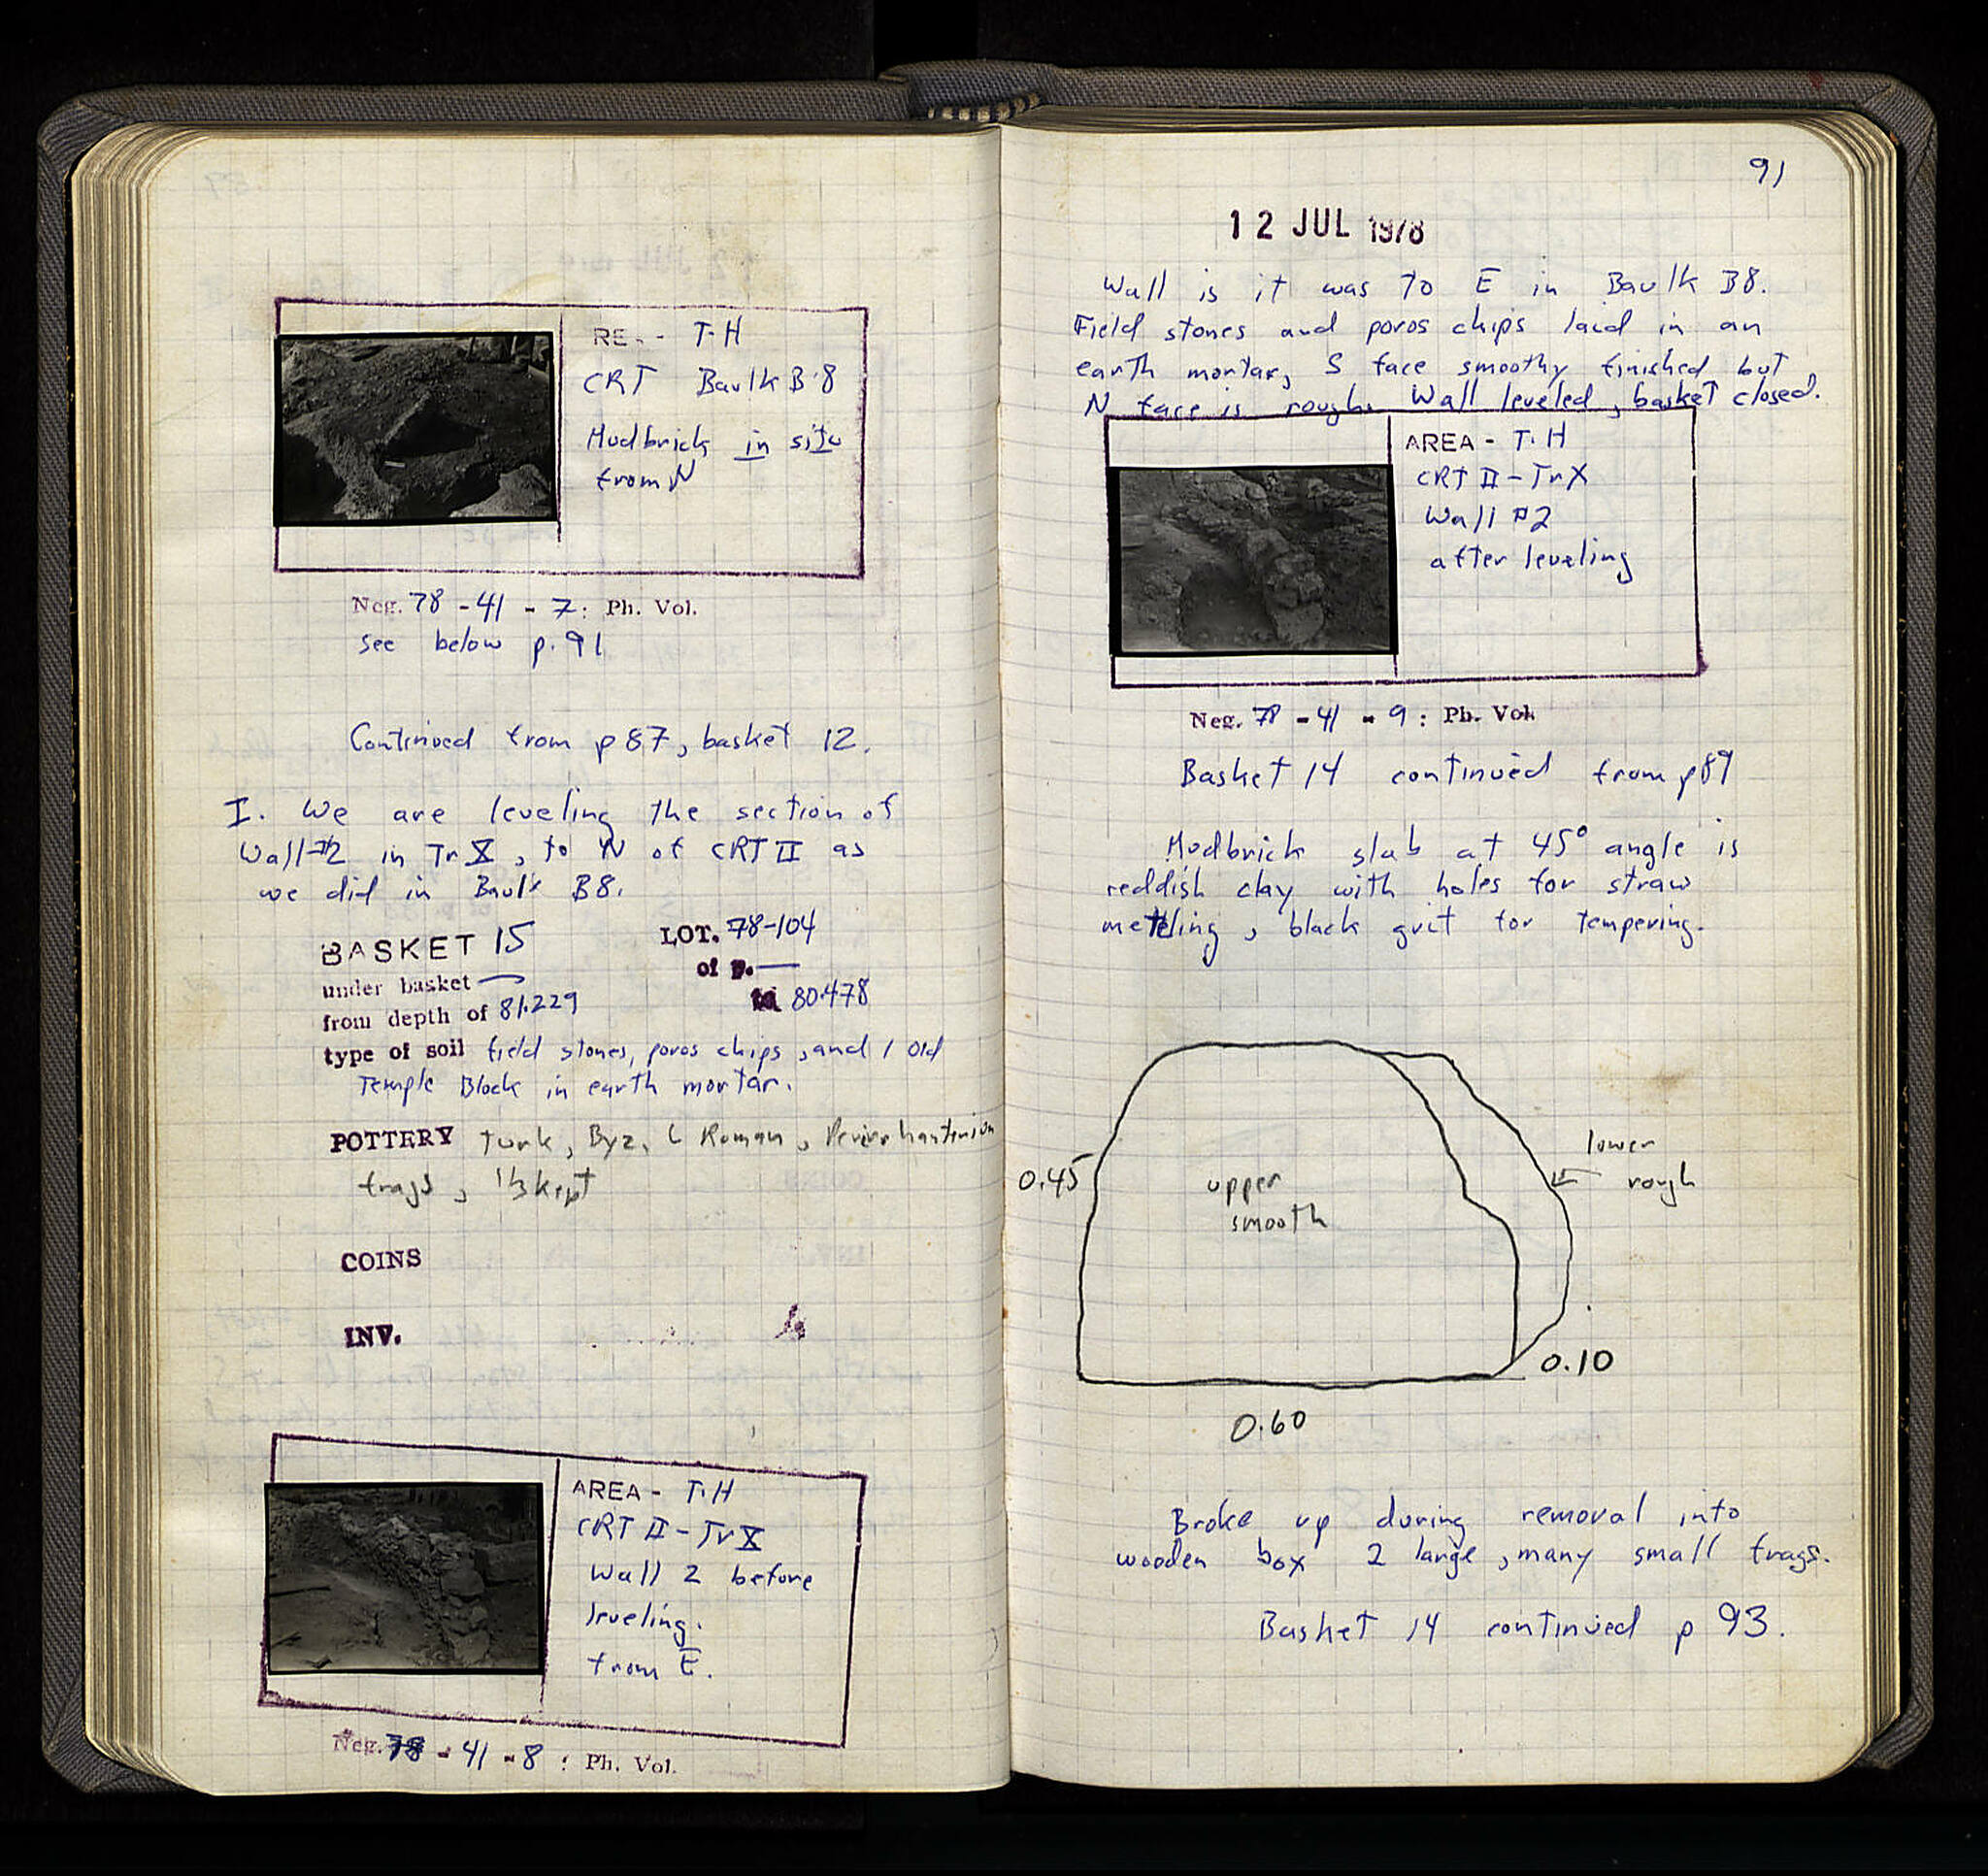 RE - T.H
CRT Baulk B 8
Mudbrick in situ
from N
Neg. 78 - 41 - 7 : Ph. Vol.
see below p. 91
Continued from p 87, basket 12.
I. We are leveling the section of
Wall #2 in Tr X, to N of CRT II as
we did in Baulk B8.
BASKET 15 LOT. 78-104
under basket — of p. —
from depth of 81.229 to 80.478
type of soil field stones, poros chips, and 1 Old
Temple Block in earth mortar.
POTTERY Turk, Byz, L Roman,
frags, 1/3 kept
COINS
INV.
AREA - T.H
CRT II - Tr X
Wall 2 before
leveling.
from E.
Neg. 78 - 41 - 8 : Ph. Vol.
91
12 JUL 1978
Wall is it was to E in Baulk B8.
Field stones and poros chips laid in an
earth mortar, S face smoothy finished but
N face is rough. Wall leveled, basket closed.
AREA - T.H
CRT II - Tr X
Wall #2
after leveling
Neg. 78 - 41 - 9 : Ph. Vol.
Basket 14 continued from p 89
Mudbrick slab at 45° angle is
reddish clay with holes for straw
, black grit for tempering.
0.45
upper
smooth
lower
rough
0.10
0.60
Broke up during removal into
wooden box 2 large, many small frags.
Basket 14 continued p 93.